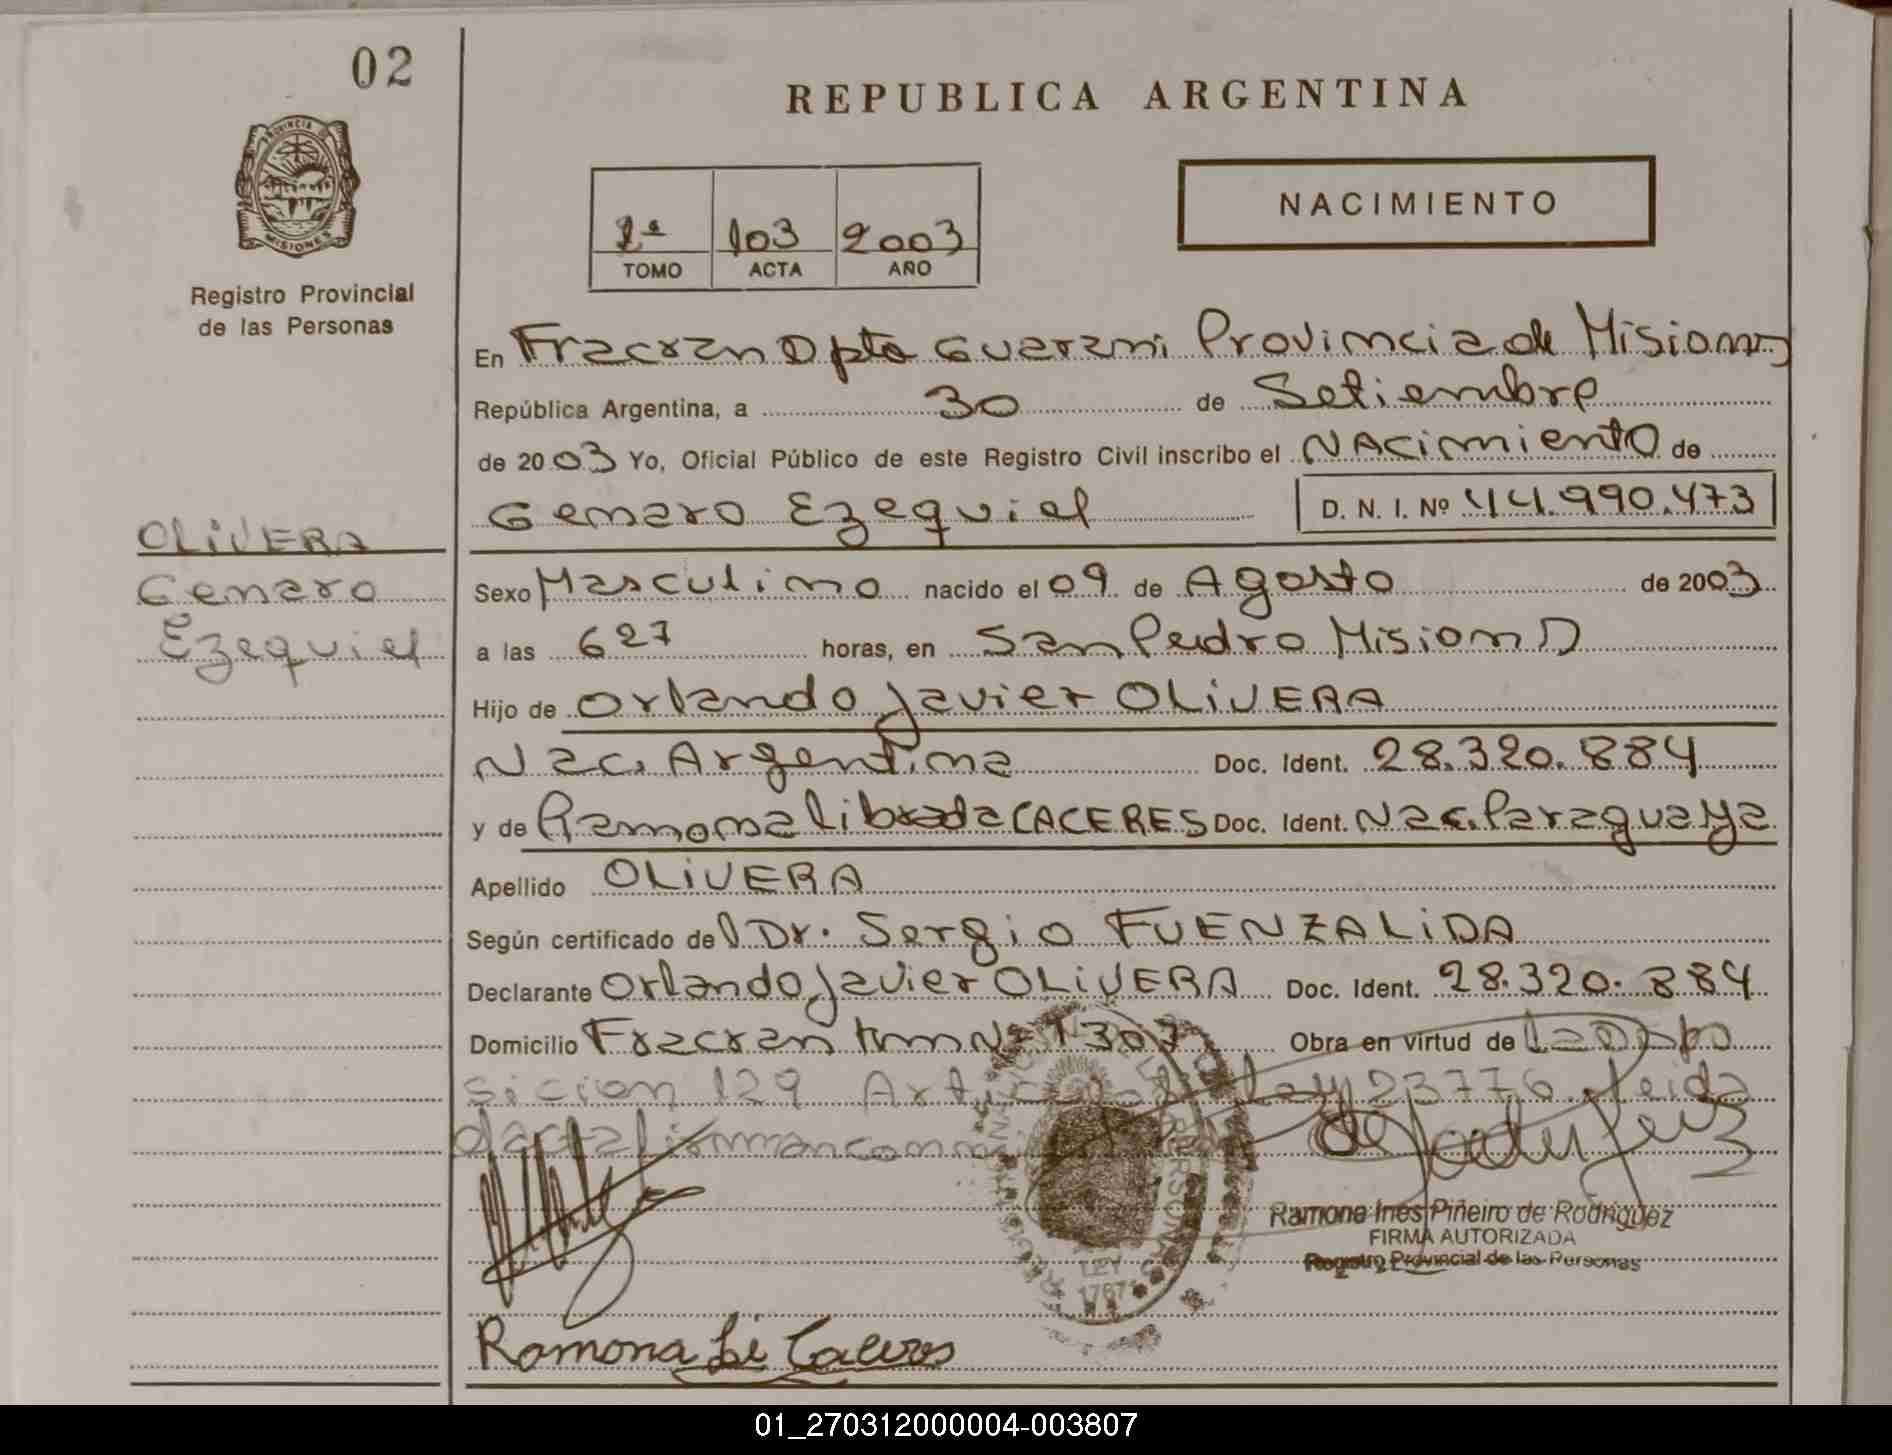 02
PROVINCIA DE
MISIONES
Registro Provincial
de las Personas
OLIVERA
Genaro
Ezequiel
REPUBLICA ARGENTINA
1ª 103 2003
TOMO ACTA AÑO
NACIMIENTO
En Fracran Dpto Guarani Provincia de Misiones
República Argentina, a 30 de Setiembre
de 2003 Yo, Oficial Público de este Registro Civil inscribo el NAcimiento de
Genaro Ezequiel D. N. I. Nº 44.990.473
Sexo Masculino nacido el 09 de Agosto de 2003
a las 627 horas, en San Pedro Misiones
Hijo de Orlando Javier OLIVERA
Nac. Argentina Doc. Ident. 28.320.884
y de Ramona Librada CACERES Doc. Ident. Nac. Paraguaya
Apellido OLIVERA
Según certificado del Dr. Sergio FUENZALIDA
Declarante Orlando Javier OLIVERA Doc. Ident. 28.320.884
Domicilio Fracran Km Nº 1307 Obra en virtud de la Dispo
sicion 129 Ley 23776 leida
LEY
Ramona Inés Piñeiro de Rodriguez
FIRMA AUTORIZADA
Registro Provincial de las Personas
Ramona Li Caceres
01_270312000004-003807